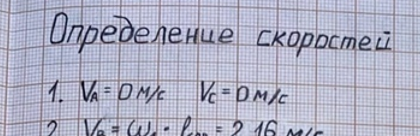 Определение скоростей
1. VA = 0 м/с VC = 0 м/с
2. VB = ω1 · = 2,16 м/с